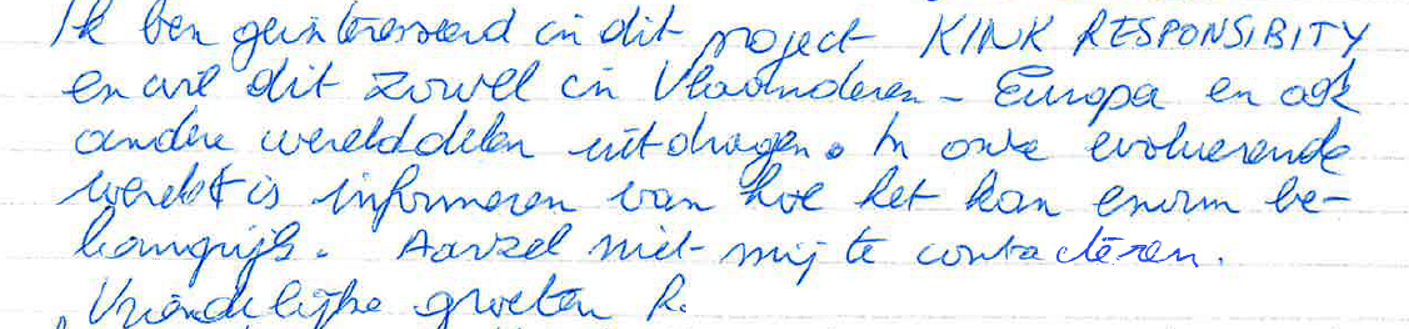 Ik ben geïnteresseerd in dit project KINK RESPONSIBITY
en wil dit zowel in Vlaanderen - Europa en ook
andere werelddelen uitdragen. In onze evoluerende
wereld is informeren van hoe het kan enorm be-
langrijk. Aarzel niet mij te contacteren.
Vriendelijke groeten R.